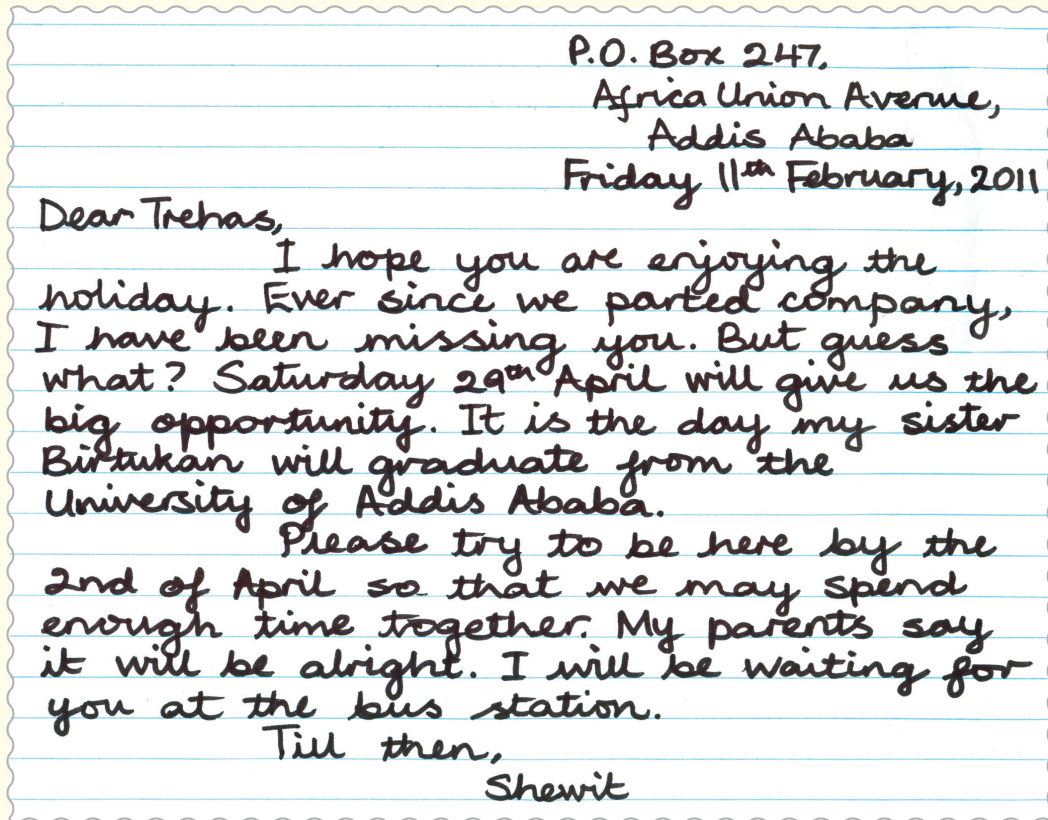 P.O. Box 247,
Africa Union Avenue,
Addis Ababa
Friday 11th February, 2011
Dear Trehas,
I hope you are enjoying the
holiday. Ever since we parted company,
I have been missing you. But guess
what? Saturday 29th April will give us the
big opportunity. It is the day my sister
Birtukan will graduate from the
University of Addis Ababa.
Please try to be here by the
2nd of April so that we may spend
enough time together. My parents say
it will be alright. I will be waiting for
you at the bus station.
Till then,
Shewit